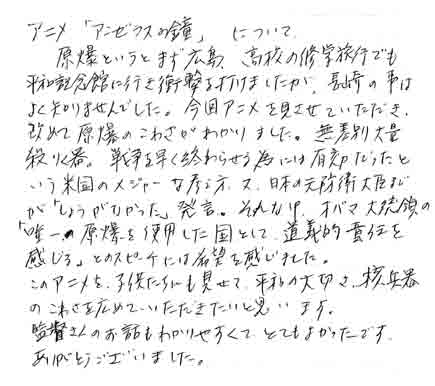 アニメ「アンゼラスの鐘」について
原爆というとまず広島、高校の修学旅行でも
平和記念館に行き衝撃を打けましたが、長崎の事は
よく知りませんでした。今回アニメを見させていただき、
改めて原爆のこわさがわかりました。無差別大量
殺りく器。戦争を早く終わらせる為には有効だったと
いう米国のメジャーな考え方、又、日本の元防衛大臣まで
が「しょうがなかった」発言。それなのに、オバマ大統領の
「唯一の原爆を使用した国として、道義的責任を
感じる」とのスピーチには希望を感じました。
このアニメを、子供たちにも見せて、平和の大切さ、核兵器
のこわさを広めていただきたいと思います。
監督さんのお話もわかりやすくて、とてもよかったです。
ありがとうございました。